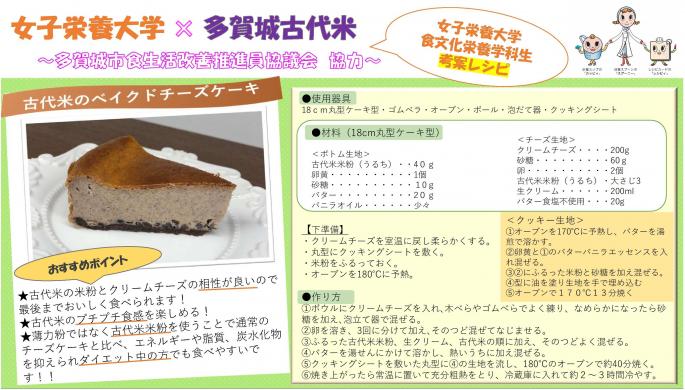 女子栄養大学 × 多賀城古代米
～多賀城市食生活改善推進員協議会 協力～
女子栄養大学
食文化栄養学科生
考案レシピ
古代米のベイクドチーズケーキ
おすすめポイント
★古代米の米粉とクリームチーズの相性が良いので
最後までおいしく食べられます！
★古代米のプチプチ食感を楽しめる！
★薄力粉ではなく古代米米粉を使うことで通常の
チーズケーキと比べ、エネルギーや脂質、炭水化物
を抑えられダイエット中の方でも食べやすいで
す！！
●使用器具
18ｃｍ丸型ケーキ型・ゴムベラ・オーブン・ボール・泡だて器・クッキングシート
●材料（18cm丸型ケーキ型）
＜ボトム生地＞
古代米米粉（うるち）・・40ｇ
卵黄・・・・・・・・・1個
砂糖・・・・・・・・・10ｇ
バター・・・・・・・・20ｇ
バニラオイル・・・・・・少々
＜チーズ生地＞
クリームチーズ・・・・200g
砂糖・・・・・・・・・60ｇ
卵・・・・・・・・・・2個
古代米米粉（うるち）・大さじ3
生クリーム・・・・・・200ml
バター食塩不使用・・・20g
【下準備】
・クリームチーズを室温に戻し柔らかくする。
・丸型にクッキングシートを敷く。
・米粉をふるっておく。
・オーブンを180℃に予熱。
＜クッキー生地＞
①オーブンを170℃に予熱し、バターを湯
煎で溶かす。
②卵黄と①のバターバニラエッセンスを入
れ混ぜる。
③②にふるった米粉と砂糖を加え混ぜる。
④型に油を塗り生地を手で埋め込む
⑤オーブンで１７０℃１３分焼く
●作り方
①ボウルにクリームチーズを入れ、木べらやゴムべらでよく練り、なめらかになったら砂
糖を加え、泡立て器で混ぜる。
②卵を溶き、3回に分けて加え、そのつど混ぜてなじませる。
③ふるった古代米米粉、生クリーム、古代米の順に加え、そのつどよく混ぜる。
④バターを湯せんにかけて溶かし、熱いうちに加え混ぜる。
⑤クッキングシートを敷いた丸型に④の生地を流し、180℃のオーブンで約40分焼く。
⑥焼き上がったら常温に置いて充分粗熱をとり、冷蔵庫に入れて約２～３時間冷やす。